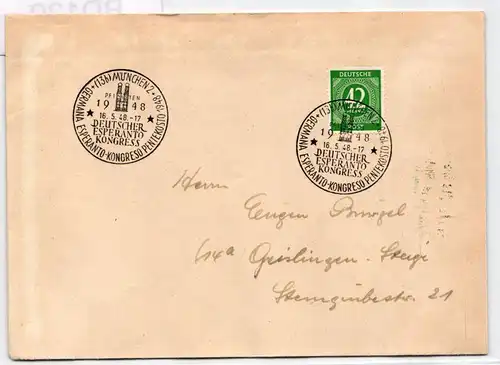 (13b) MÜNCHEN 2
PFINGSTEN
1948
16.5.48.-17
★ DEUTSCHER ★
ESPERANTO
KONGRESS
GERMANA ESPERANTO-KONGRESO PENTEKOSTO 1948
DEUTSCHE
42
POST
(13b) MÜNCHEN
1948
16.5.48.-17
★ DEUTSCHER ★
ESPERANTO
KONGRESS
GERMANA ESPERANTO-KONGRESO PENTEKOSTO 19
Herrn
Eugen
14a Geislingen-Steige
21